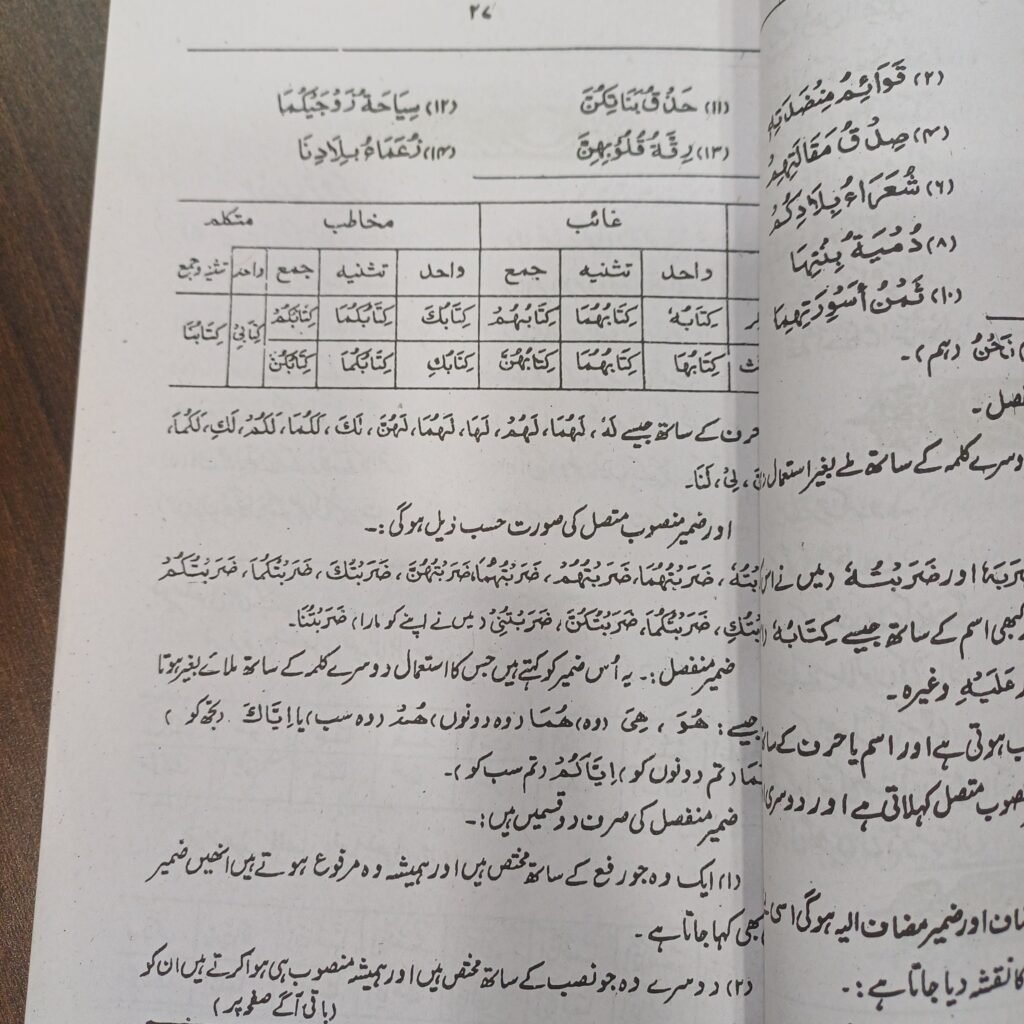 ۲۷
(۱۱) حَذُقُ بَنَاتِكُنَّ (۱۲) سِيَاحَةُ زَوْجَيْكُمَا
(۱۳) رِقَّةُ قُلُوْبِهِنَّ (۱۴) زُعَمَاءُ بِلَادِنَا
غائب مخاطب متکلم
واحد تثنیہ جمع واحد تثنیہ جمع واحد تثنیہ وجمع
كِتَابُهٗ كِتَابُهُمَا كِتَابُهُمْ كِتَابُكَ كِتَابُكُمَا كِتَابُكُمْ كِتَابِيْ كِتَابُنَا
كِتَابُهَا كِتَابُهُمَا كِتَابُهُنَّ كِتَابُكِ كِتَابُكُمَا كِتَابُكُنَّ
حرف کے ساتھ جیسے لَهٗ، لَهُمَا، لَهُمْ، لَهَا، لَهُمَا، لَهُنَّ، لَكَ، لَكُمَا، لَكُمْ، لَكِ، لَكُمَا،
، لِيْ، لَنَا۔
اور ضمیر منصوب متصل کی صورت حسب ذیل ہوگی :۔
، ضَرَبْتُهُمَا، ضَرَبْتُهُمْ، ضَرَبْتُهُمَا، ضَرَبْتُهُنَّ، ضَرَبْتُكَ، ضَرَبْتُكُمَا، ضَرَبْتُكُمْ
، ضَرَبْتُكُمَا، ضَرَبْتُكُنَّ، ضَرَبْتُنِيْ (میں نے اپنے کو مارا) ضَرَبْتُنَا۔
ضمیر منفصل :۔ یہ اُس ضمیر کو کہتے ہیں جس کا استعمال دوسرے کلمہ کے ساتھ ملائے بغیر ہوتا
جیسے : هُوَ ، هِيَ (وہ) هُمَا (وہ دونوں) هُمْ (وہ سب) یا اِيَّاكَ (تجھ کو)
(تم دونوں کو) اِيَّاكُمْ (تم سب کو)۔
ضمیر منفصل کی صرف دو قسمیں ہیں :۔
(۱) ایک وہ جو رفع کے ساتھ مختص ہیں اور ہمیشہ وہ مرفوع ہوتے ہیں انھیں ضمیر
بھی کہا جاتا ہے ۔
(۲) دوسرے وہ جو نصب کے ساتھ مختص ہیں اور ہمیشہ منصوب ہی ہوا کرتے ہیں ان کو
(باقی آگے صفحہ پر)
(۲) قَوَائِمُ
(۴) صِدْقُ مَقَالَتِهِمْ
(۶) شُعَرَاءُ بِلَادِكُمْ
(۸) دُمْيَةُ بِنْتِهَا
(۱۰) ثَمَنُ أَسْوِرَتِهِمَا
نَحْنُ (ہم)۔
دوسرے کلمہ کے ساتھ ملے بغیر استعمال
اور ضَرَبْتُهٗ (میں نے
کبھی اسم کے ساتھ جیسے كِتَابُهٗ
عَلَيْهِ وغیرہ۔
ہوتی ہے اور اسم یا حرف کے
متصل کہلاتی ہے اور دوسری
اور ضمیر مضاف الیہ ہوگی اسی
کا نقشہ دیا جاتا ہے :۔